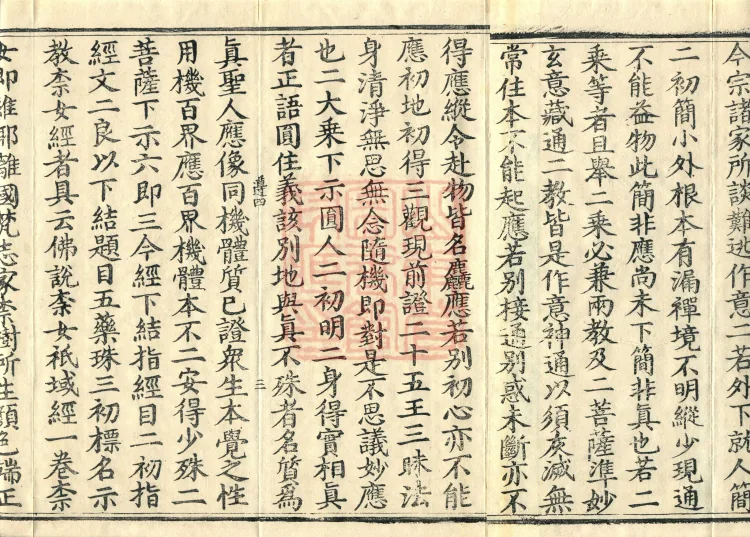 今宗諸家所談難逃作意二若外下就人簡
二初簡小外根本有漏禪境不明縱少現通
不能益物此簡非應尚未下簡非真也若二
乘等者且舉二乘必兼兩教及二菩薩準妙
玄意藏通二教皆是作意神通以須灰滅無
常住本不能起應若別接通別惑未斷亦不
得應縱令赴物皆名麤應若別初心亦不能
應初地初得三觀現前證二十五王三昧法
身清淨無思無念隨機即對是不思議妙應
也二大乘下示圓人二初明二身得實相真
者正語圓住義該別地與真不殊者名質為
尊四
三
真聖人應像同機體質已證衆生本覺之性
用機百界應百界機體本不二安得少殊二
菩薩下示六即三今經下結指經目二初指
經文二良以下結題目五藥珠三初標名示
教柰女經者具云佛說柰女祇域經一卷柰
女即維耶離國梵志家柰樹所生顏色端正